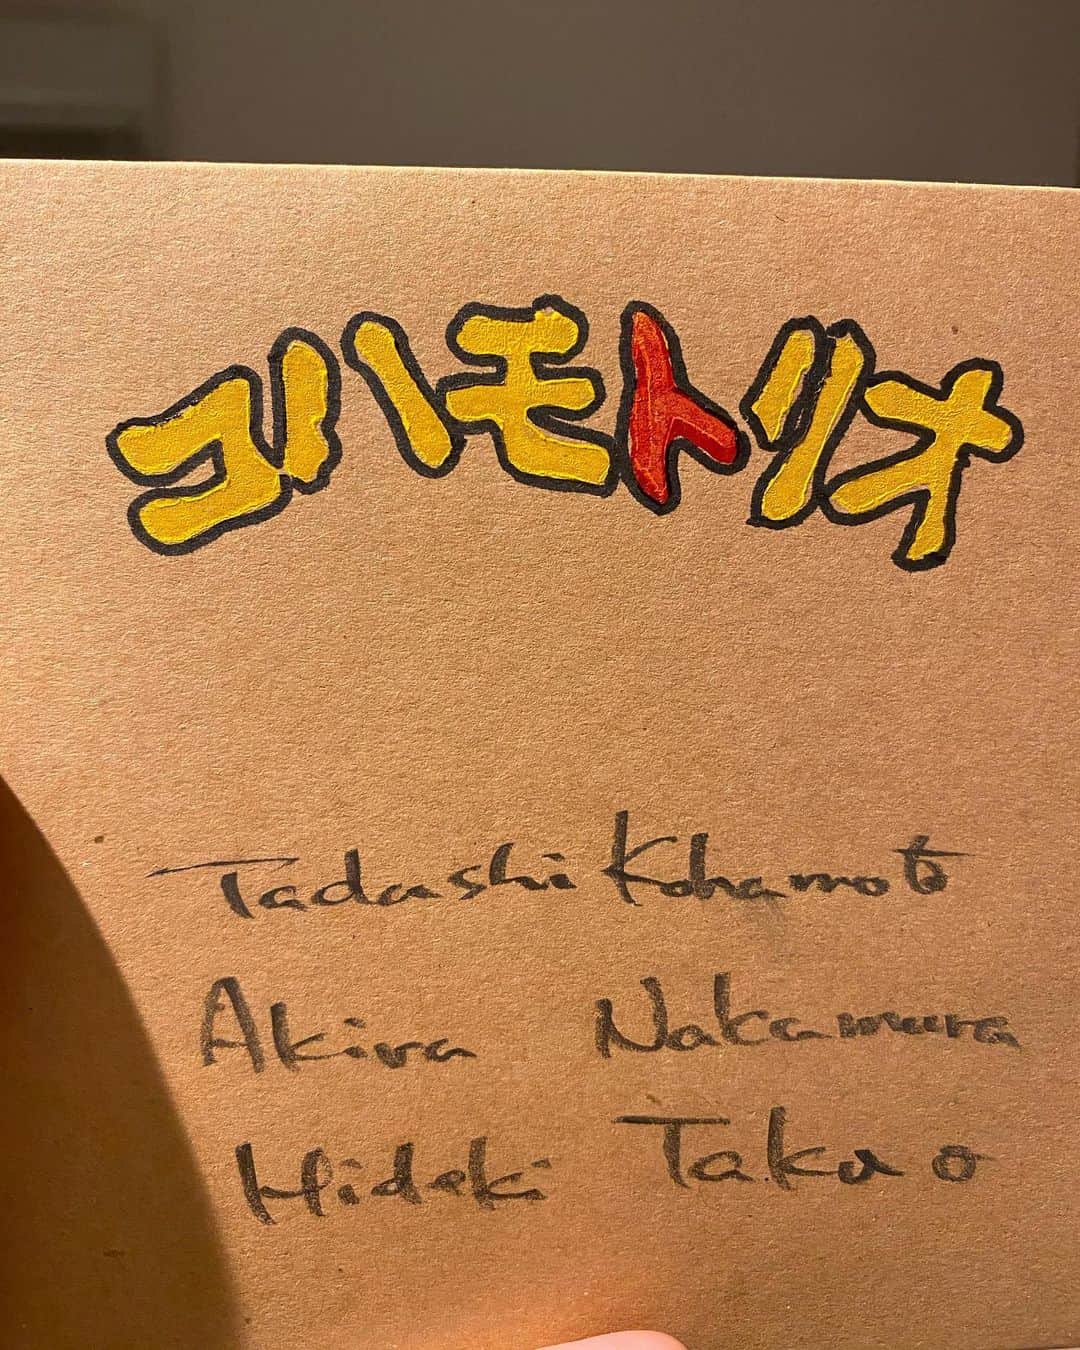 コハモトリオ
Tadashi Kohamoto
Akira Nakamura
Hideki Takao